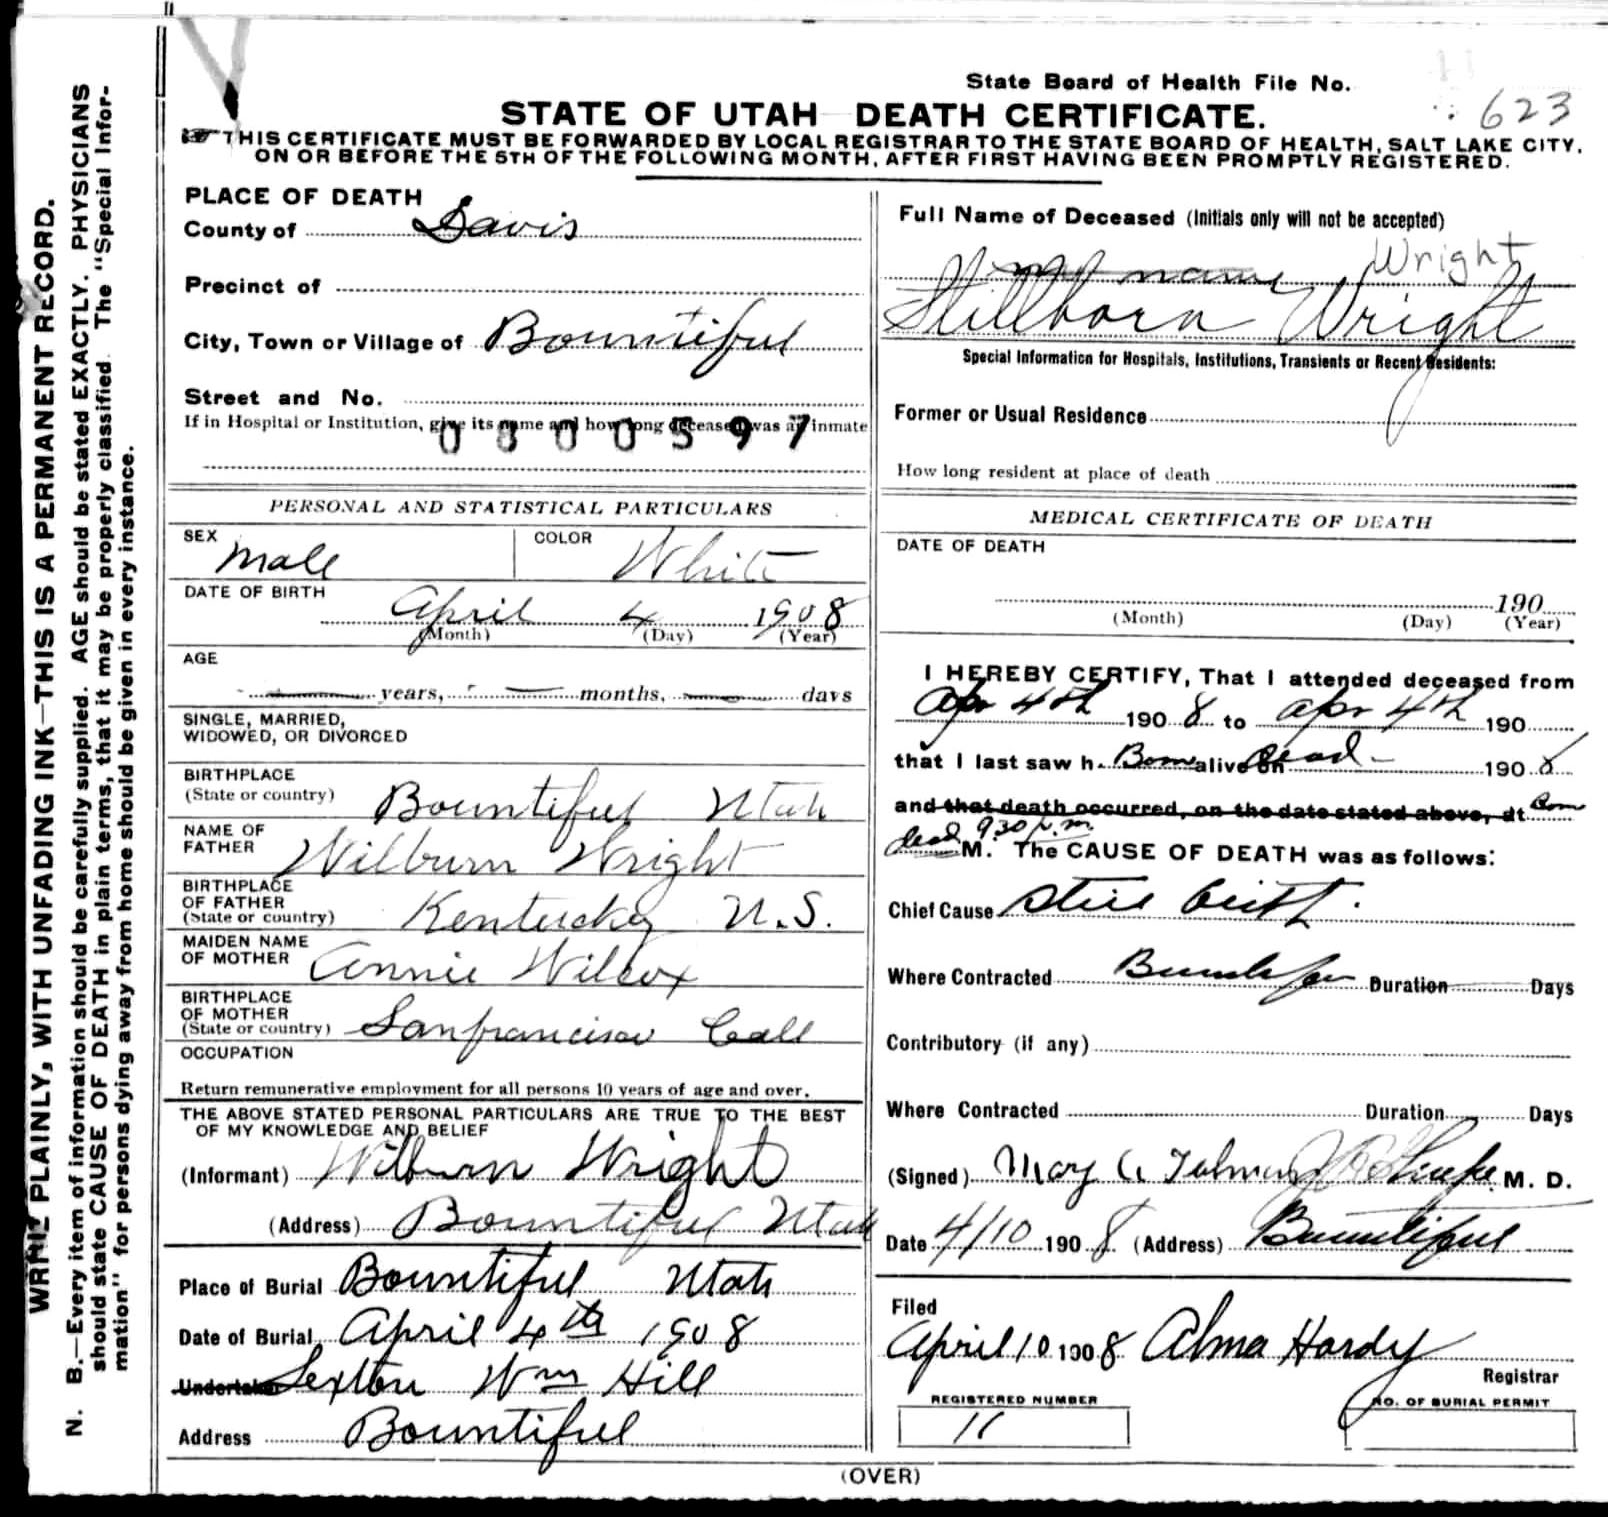 State Board of Health File No.
623
STATE OF UTAH DEATH CERTIFICATE.
THIS CERTIFICATE MUST BE FORWARDED BY LOCAL REGISTRAR TO THE STATE BOARD OF HEALTH, SALT LAKE CITY,
ON OR BEFORE THE 5TH OF THE FOLLOWING MONTH, AFTER FIRST HAVING BEEN PROMPTLY REGISTERED.
WRITE PLAINLY, WITH UNFADING INK—THIS IS A PERMANENT RECORD.
N. B.—Every item of information should be carefully supplied. AGE should be stated EXACTLY. PHYSICIANS
should state CAUSE OF DEATH in plain terms, that it may be properly classified. The "Special Infor-
mation" for persons dying away from home should be given in every instance.
PLACE OF DEATH
County of Davis
Precinct of
City, Town or Village of Bountiful
Street and No.
If in Hospital or Institution, give its name and how long deceased was an inmate
0800597
PERSONAL AND STATISTICAL PARTICULARS
SEX Male COLOR White
DATE OF BIRTH
April 4 1908
(Month) (Day) (Year)
AGE
years, months, days
SINGLE, MARRIED,
WIDOWED, OR DIVORCED
BIRTHPLACE
(State or country) Bountiful Utah
NAME OF
FATHER Wilburn Wright
BIRTHPLACE
OF FATHER
(State or country) Kentucky U.S.
MAIDEN NAME
OF MOTHER Annie Wilcox
BIRTHPLACE
OF MOTHER
(State or country) Sanfrancisco Call
OCCUPATION
Return remunerative employment for all persons 10 years of age and over.
THE ABOVE STATED PERSONAL PARTICULARS ARE TRUE TO THE BEST
OF MY KNOWLEDGE AND BELIEF
(Informant) Wilburn Wright
(Address) Bountiful Utah
Place of Burial Bountiful Utah
Date of Burial April 4th 1908
Undertaker Sexton Wm Hill
Address Bountiful
Full Name of Deceased (Initials only will not be accepted)
name Wright
Stillborn Wright
Special Information for Hospitals, Institutions, Transients or Recent Residents:
Former or Usual Residence
How long resident at place of death
MEDICAL CERTIFICATE OF DEATH
DATE OF DEATH
190
(Month) (Day) (Year)
I HEREBY CERTIFY, That I attended deceased from
Apr 4th 1908 to Apr 4th 190
that I last saw h Born alive on dead 1908
and that death occurred, on the date stated above, at Born
dead 9.30 p.m. M. The CAUSE OF DEATH was as follows:
Chief Cause Still birth.
Where Contracted Duration Days
Contributory (if any)
Where Contracted Duration Days
(Signed) Mary M. D.
Date 4/10 1908 (Address) Bountiful
Filed
April 10 1908 Alma Hardy
Registrar
REGISTERED NUMBER
11
NO. OF BURIAL PERMIT
(OVER)